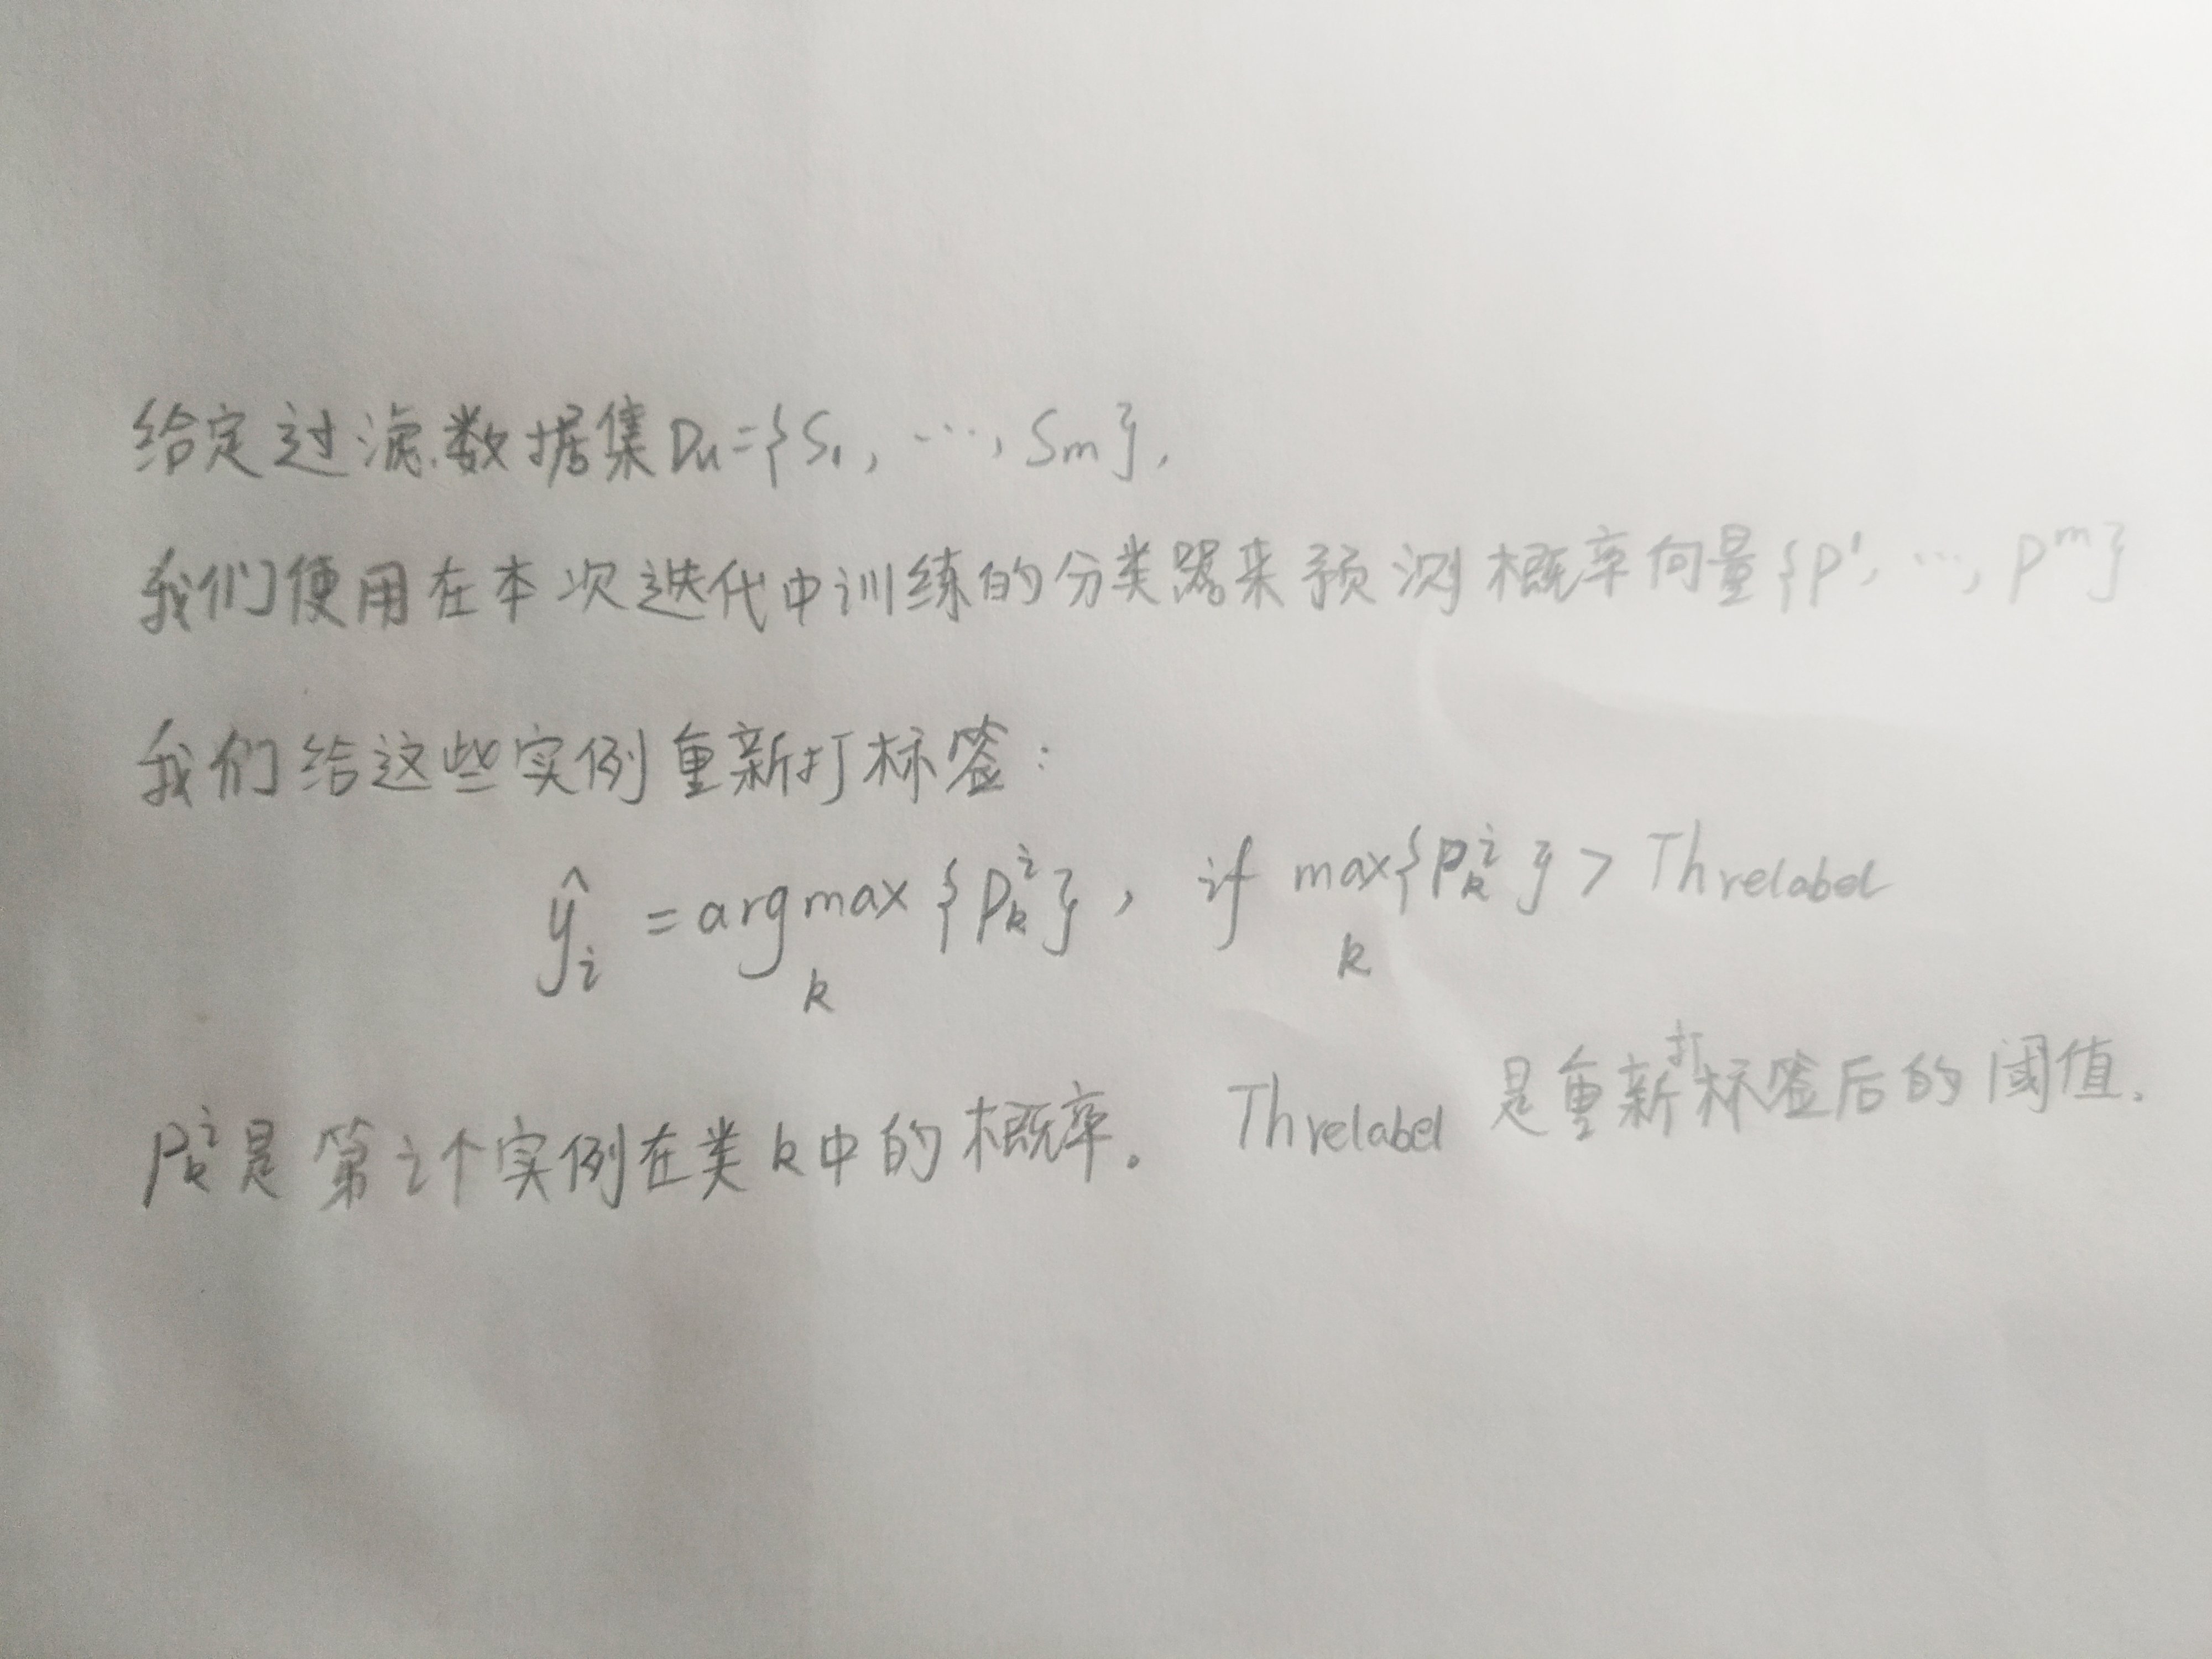 给定过滤数据集 Du={S₁, ···, Sm}.
我们使用在本次迭代中训练的分类器来预测概率向量{P¹, ···, Pᵐ}
我们给这些实例重新打标签:
ŷᵢ = arg max {Pₖⁱ}, if max{Pₖⁱ} > Threlabel
k k
Pₖⁱ是第i个实例在类k中的概率。 Threlabel 是重新打标签后的阈值.